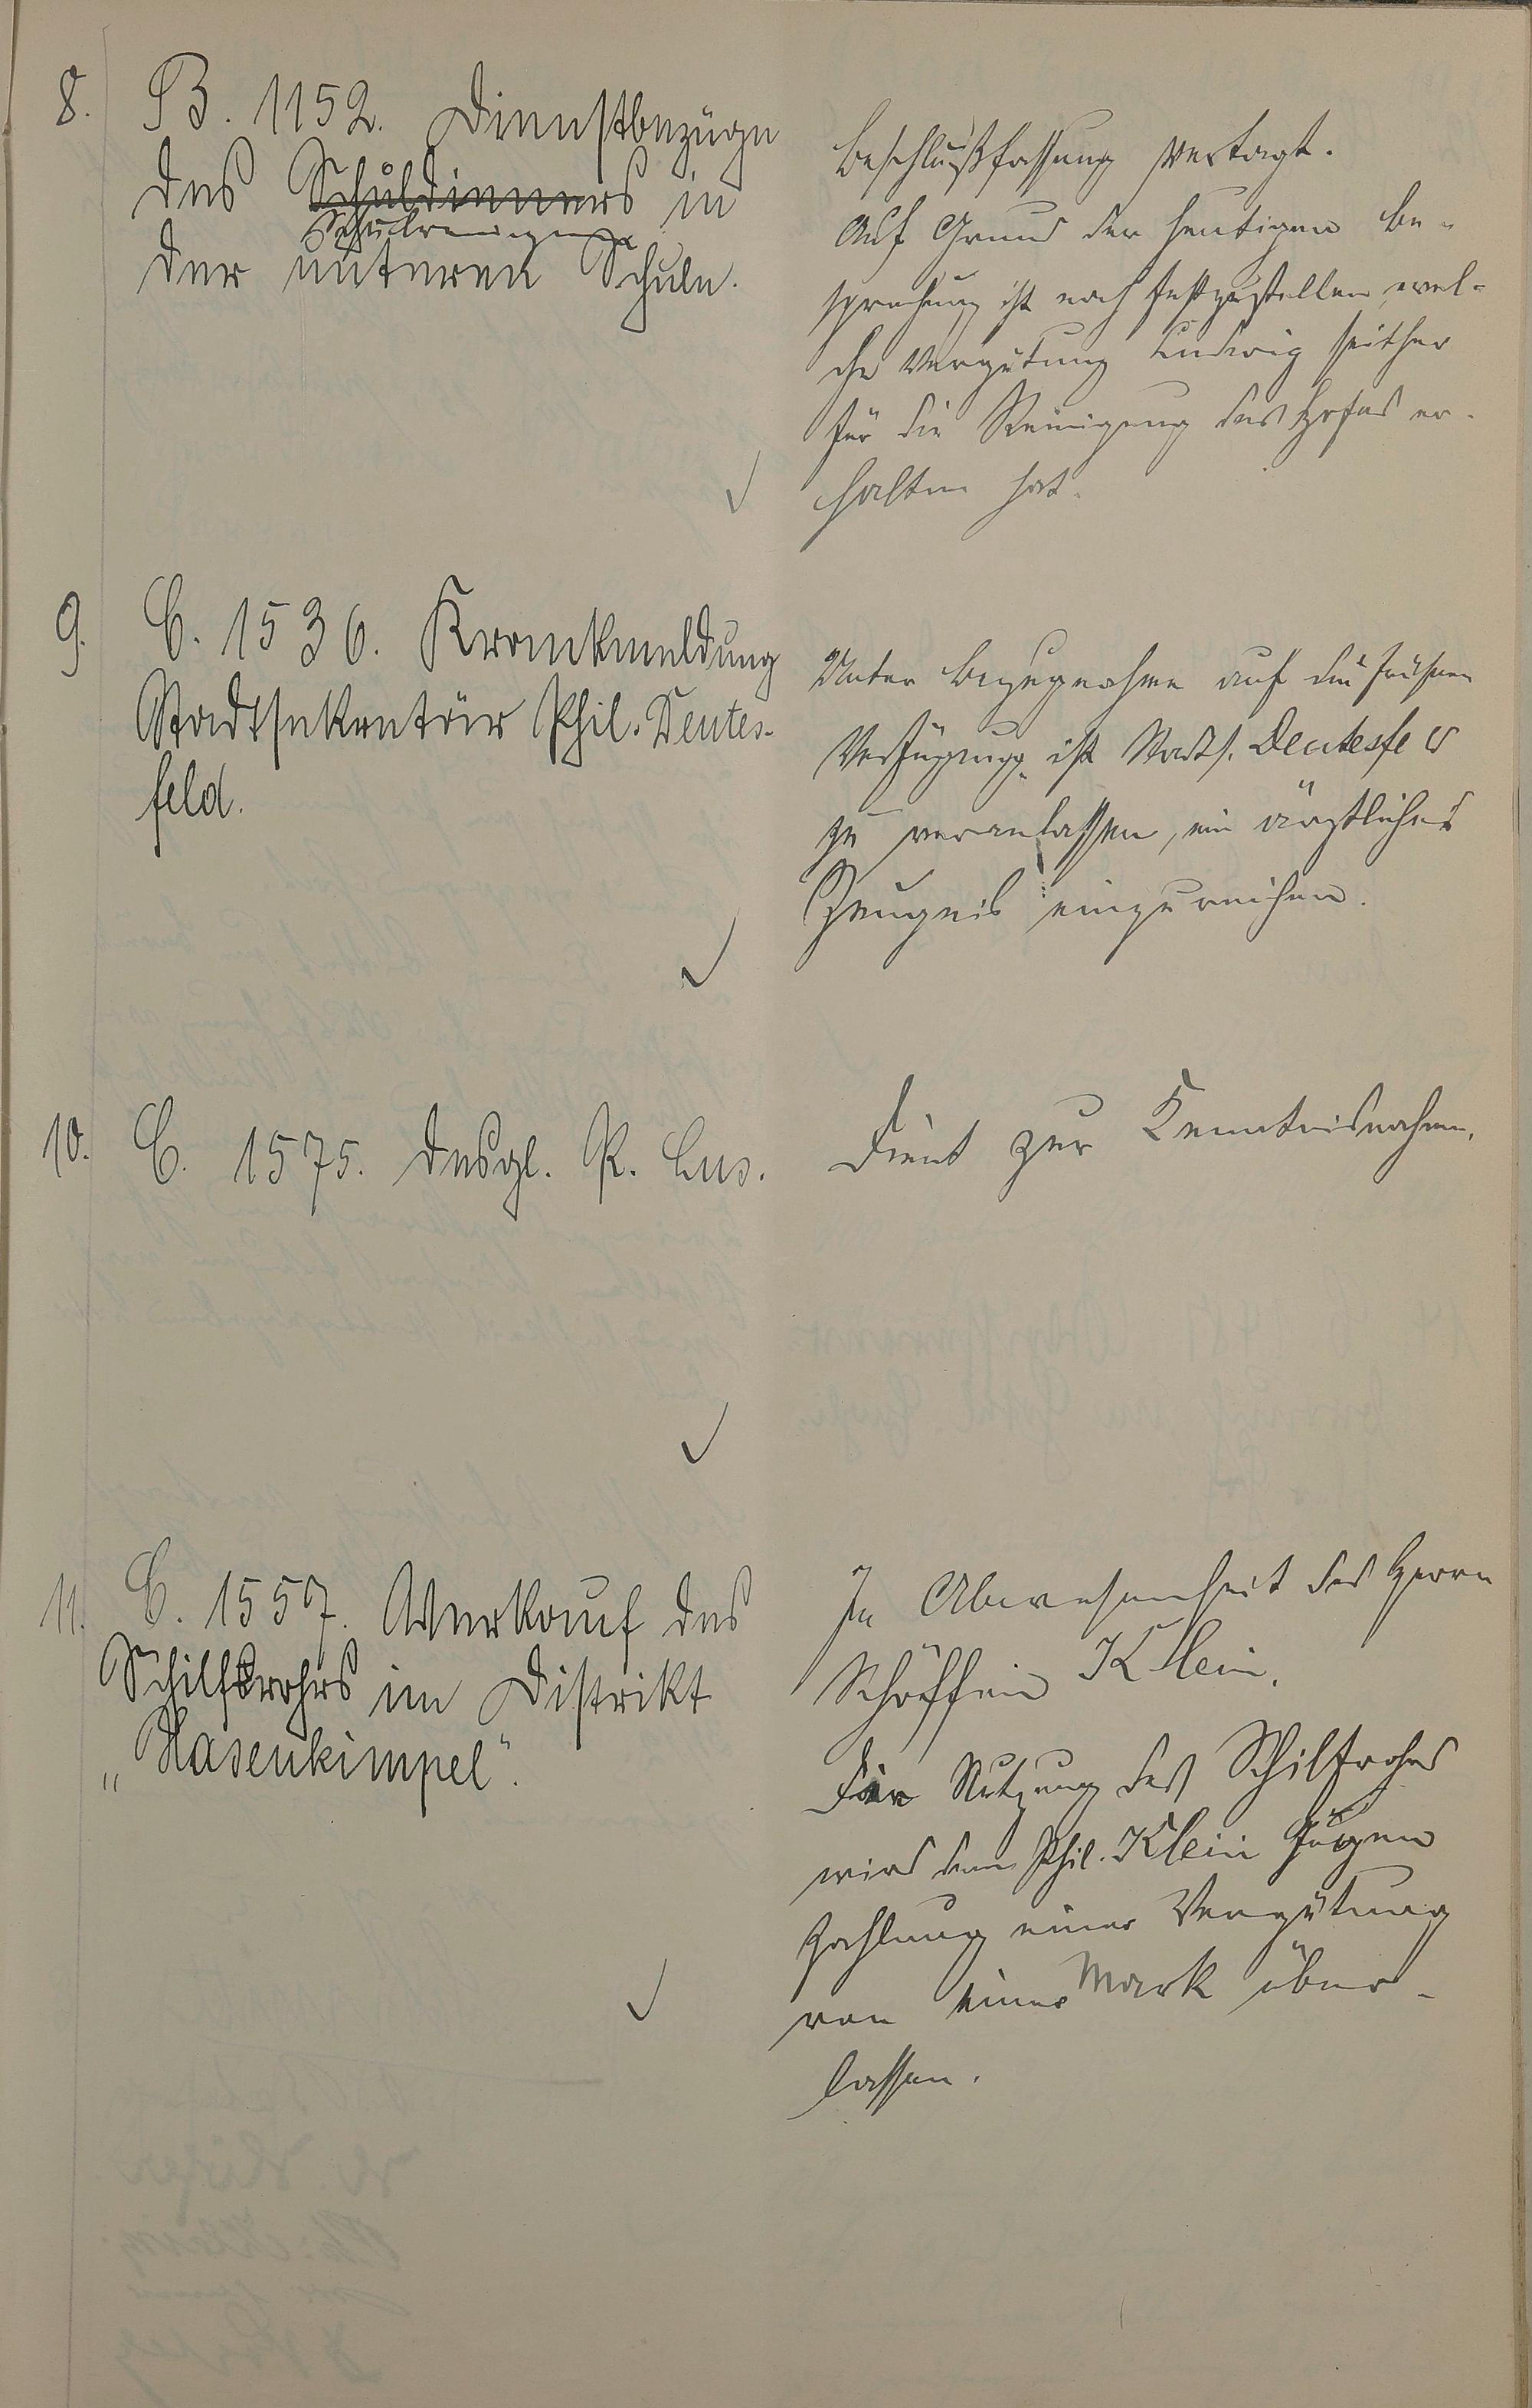 8. B. 1152. Dienstbezüge
des Schuldieners in
Schulreinigers
der unteren Schule.
Beschlußfassung vertagt.
Auf Grund der heutigen Be-
sprechung ist noch festzustellen, wel-
che Vergütung Ludwig seither
für die Reinigung des Hofes er-
halten hat.
9. C. 1536. Krankmeldung
Stadtsekretär Phil. Deutes-
feld.
Unter Bezugnahme auf die frühere
Verfügung ist Stadts. Deutesfeld
zu veranlassen, ein ärztliches
Zeugnis einzureichen.
10. C. 1575. desgl. R. Lus.
Dient zur Kenntnisnahme.
11. C. 1557. Verkauf des
Schilfrohrs im Distrikt
„Hasenkimpel".
In Abwesenheit des Herrn
Schöffen Klein.
Die Nutzung des Schilfrohrs
wird dem Phil. Klein gegen
Zahlung einer Vergütung
von einer Mark über-
lassen.